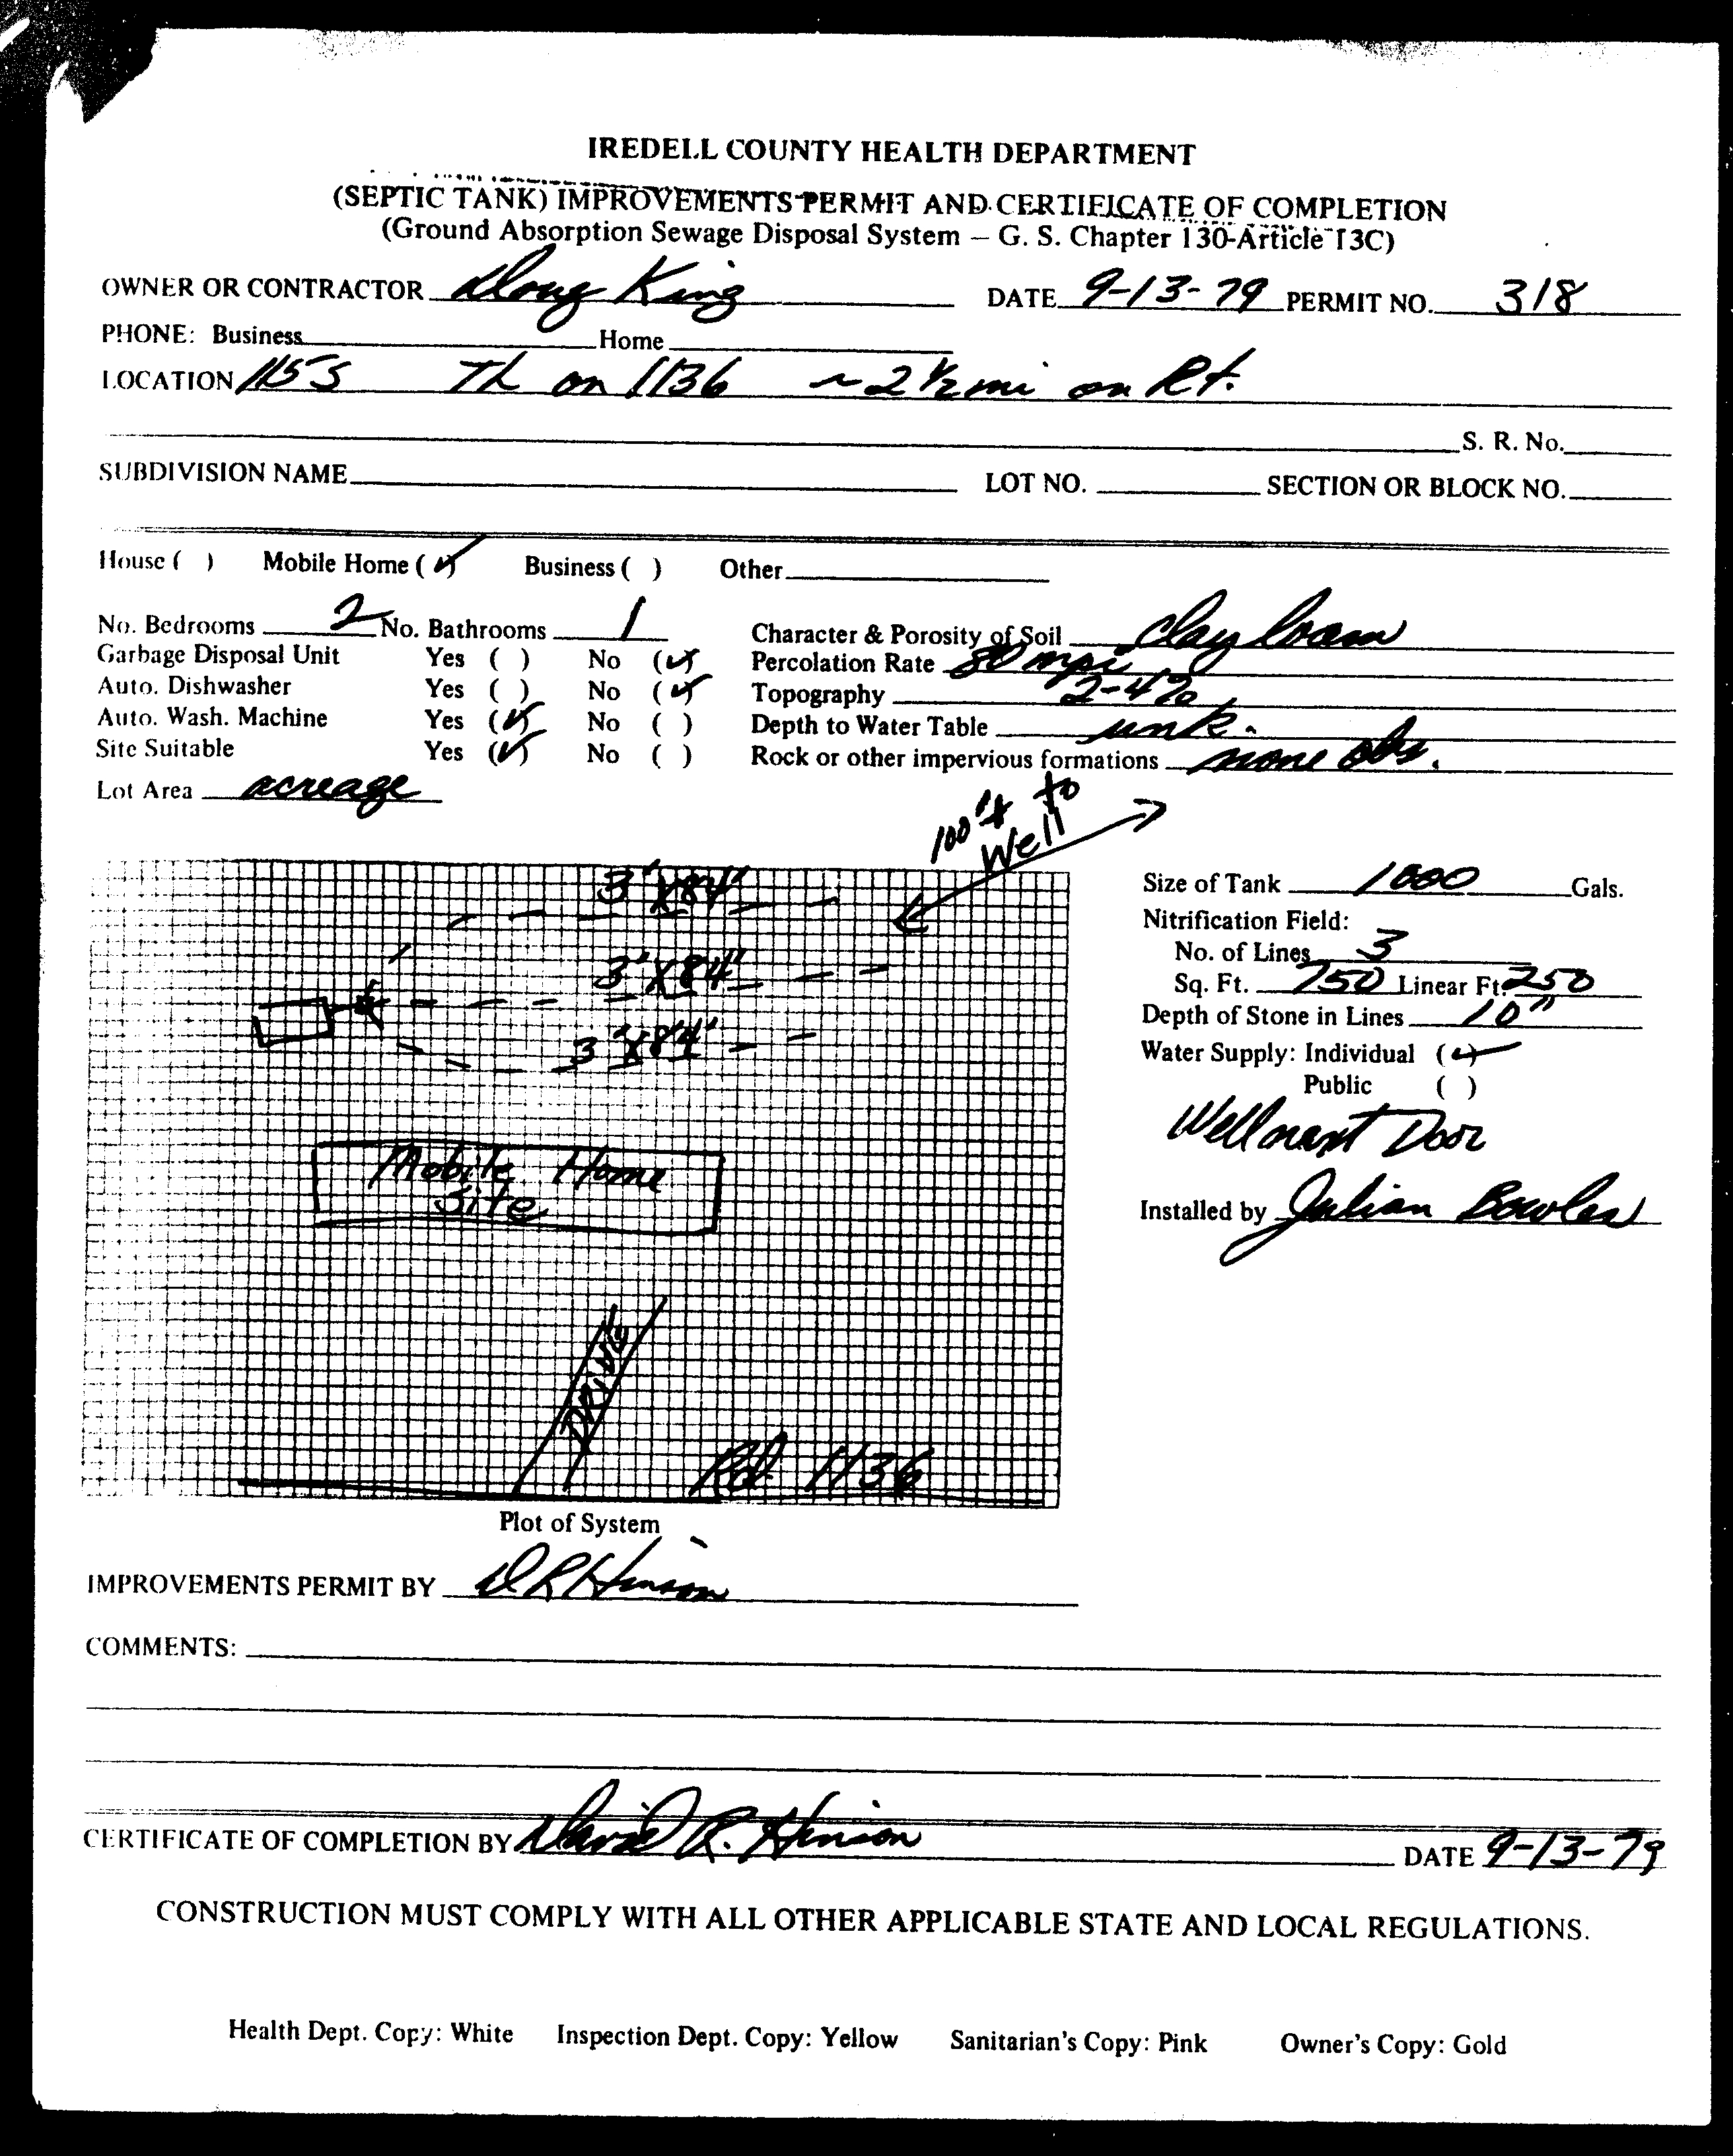 IREDELL COUNTY HEALTH DEPARTMENT
(SEPTIC TANK) IMPROVEMENTS PERMIT AND CERTIFICATE OF COMPLETION
(Ground Absorption Sewage Disposal System – G. S. Chapter 130-Article 13C)
OWNER OR CONTRACTOR Doug King DATE 9-13-79 PERMIT NO. 318
PHONE: Business Home
LOCATION 115 S TL on 1136 ~2 1/2 mi on Rt.
S. R. No.
SUBDIVISION NAME LOT NO. SECTION OR BLOCK NO.
House ( ) Mobile Home (✓) Business ( ) Other
No. Bedrooms 2 No. Bathrooms 1 Character & Porosity of Soil Clay loam
Garbage Disposal Unit Yes ( ) No (✓) Percolation Rate 80 mpi
Auto. Dishwasher Yes ( ) No (✓) Topography 2-4%
Auto. Wash. Machine Yes (✓) No ( ) Depth to Water Table unk.
Site Suitable Yes (✓) No ( ) Rock or other impervious formations none obs.
Lot Area acreage
100'± to
Well
3'X84'
3'X84'
3'X84'
Mobile Home
Site
DRIVE
Rd 1136
Size of Tank 1000 Gals.
Nitrification Field:
No. of Lines 3
Sq. Ft. 750 Linear Ft. 250
Depth of Stone in Lines 10"
Water Supply: Individual (✓)
Public ( )
Well Door
Installed by Julian Bowles
Plot of System
IMPROVEMENTS PERMIT BY D R Hinson
COMMENTS:
CERTIFICATE OF COMPLETION BY David R. Hinson DATE 9-13-79
CONSTRUCTION MUST COMPLY WITH ALL OTHER APPLICABLE STATE AND LOCAL REGULATIONS.
Health Dept. Copy: White Inspection Dept. Copy: Yellow Sanitarian's Copy: Pink Owner's Copy: Gold